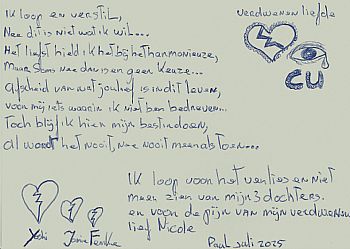 Ik loop en verstil,
verdwenen liefde
Nee dit is niet wat ik wil...
Het liefst hield ik het bij het harmonieuze,
maar soms nee dan is er geen keuze...
CU
afscheid van wat jou lief is in dit leven,
voor mij iets waarin ik niet ben bedreven...
Toch blijf ik hier mijn best in doen,
al wordt het nooit, nee nooit meer als toen...
Ik loop voor het verlies en niet
meer zien van mijn 3 dochters.
en voor de pijn van mijn verdwenen
lief Nicole
Femke
Paul juli 2025